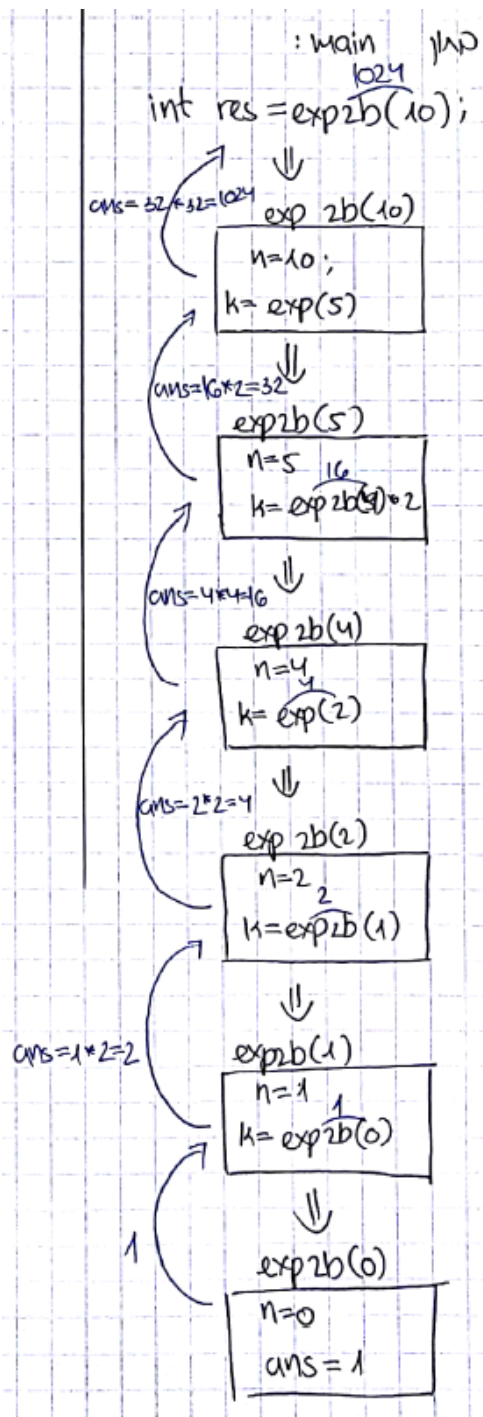 מתוך main :
1024
int res = exp2b(10);
ans= 32*32=1024
exp 2b(10)
n=10;
k= exp(5)
ans=16*2=32
exp2b(5)
n=5
16
k= exp2b(4)*2
ans=4*4=16
exp 2b(4)
n=4
4
k= exp(2)
ans=2*2=4
exp 2b(2)
n=2
2
k=exp2b(1)
ans=1*2=2
exp2b(1)
n=1
1
k= exp2b(0)
1
exp2b(0)
n=0
ans=1